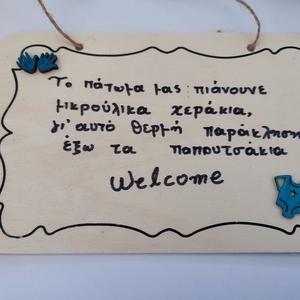 Το πάτωμα μας πιάνουνε
μικρούλικα χεράκια,
γι' αυτό θερμή παράκληση
έξω τα παπουτσάκια
Welcome